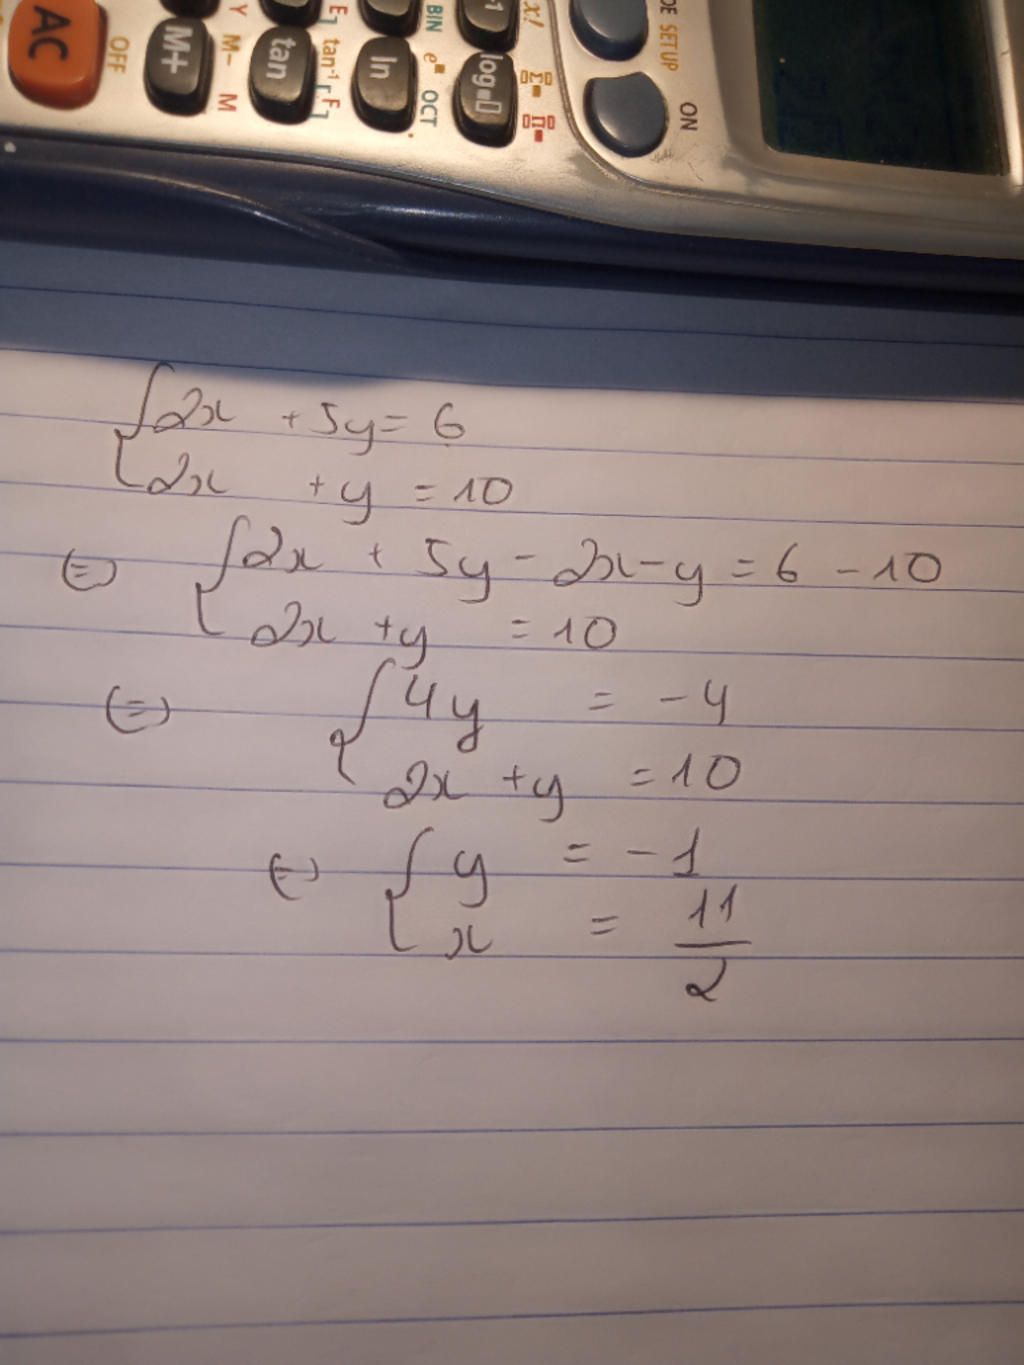 AC OFF M+ Y M- M tan E] tan-1 [F] ln BIN e■ OCT log x! SETUP ON
{2x + 5y = 6
{2x + y = 10
(=) {2x + 5y - 2x - y = 6 - 10
{2x + y = 10
(=) {4y = -4
{2x + y = 10
(=) {y = -1
{x = 11/2